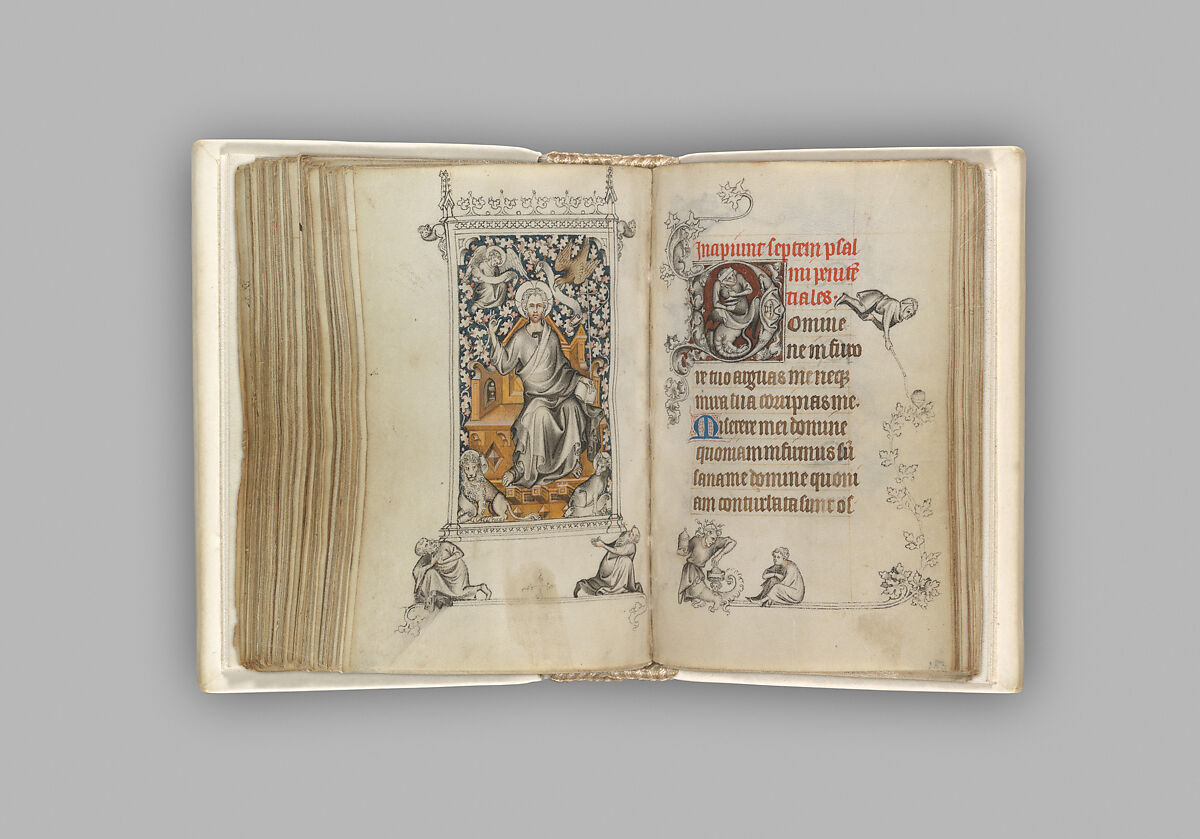 Incipiunt septem psal
mi penitē
tiales.
Domine
ne in furo
re tuo arguas me neq₃
in ira tua corripias me.
Miserere mei domine
quoniam infirmus sū
sana me domine quoni
am conturbata sunt os